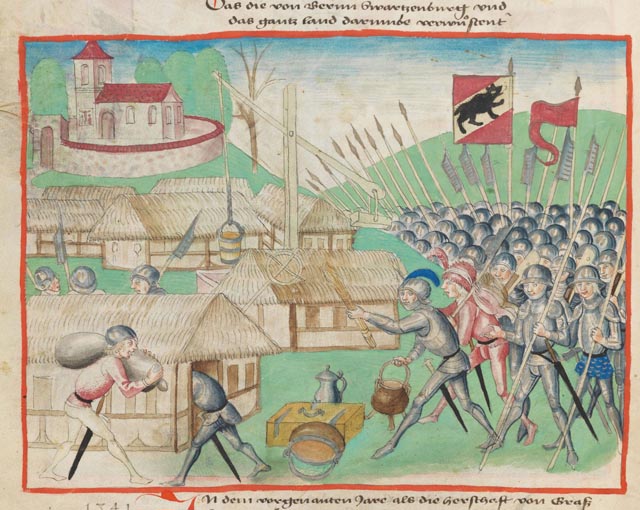 Das die von Bernn Swartzenburg vnd
das gantz land darumbe verwůstent
1341
In dem vorgenanten Jare als die herschaft von